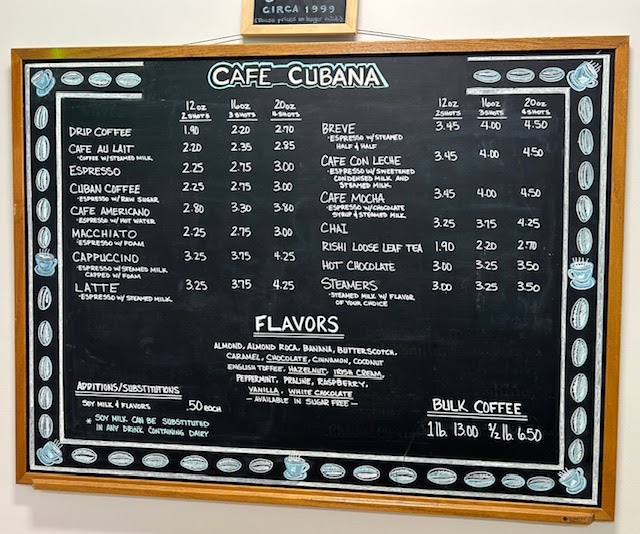 CIRCA 1999
CAFE CUBANA
12oz 16oz 20oz
2 SHOTS 3 SHOTS 4 SHOTS
DRIP COFFEE 1.90 2.20 2.70
CAFE AU LAIT 2.20 2.35 2.85
·COFFEE W/STEAMED MILK
ESPRESSO 2.25 2.75 3.00
CUBAN COFFEE 2.25 2.75 3.00
·ESPRESSO W/ RAW SUGAR
CAFE AMERICANO 2.80 3.30 3.80
·ESPRESSO W/ HOT WATER
MACCHIATO 2.25 2.75 3.00
·ESPRESSO W/ FOAM
CAPPUCCINO 3.25 3.75 4.25
·ESPRESSO W/STEAMED MILK
CAPPED W/ FOAM
LATTE 3.25 3.75 4.25
·ESPRESSO W/STEAMED MILK
12oz 16oz 20oz
2SHOTS 3SHOTS 4 SHOTS
BREVE 3.45 4.00 4.50
·ESPRESSO W/STEAMED
HALF & HALF
CAFE CON LECHE 3.45 4.00 4.50
·ESPRESSO W/SWEETENED
CONDENSED MILK AND
STEAMED MILK
CAFE MOCHA 3.45 4.00 4.50
·ESPRESSO W/CHOCOLATE
SYRUP & STEAMED MILK
CHAI 3.25 3.75 4.25
RISHI LOOSE LEAF TEA 1.90 2.20 2.70
HOT CHOCOLATE 3.00 3.25 3.50
STEAMERS 3.00 3.25 3.50
·STEAMED MILK W/ FLAVOR
OF YOUR CHOICE
FLAVORS
ALMOND, ALMOND ROCA, BANANA, BUTTERSCOTCH,
CARAMEL, CHOCOLATE, CINNAMON, COCONUT
ENGLISH TOFFEE, HAZELNUT, IRISH CREAM,
PEPPERMINT, PRALINE, RASPBERRY,
VANILLA, WHITE CHOCOLATE
— AVAILABLE IN SUGAR FREE —
ADDITIONS/SUBSTITUTIONS
SOY MILK & FLAVORS .50 EACH
* SOY MILK CAN BE SUBSTITUTED
IN ANY DRINK CONTAINING DAIRY
BULK COFFEE
1 lb. 13.00 1/2 lb. 6.50